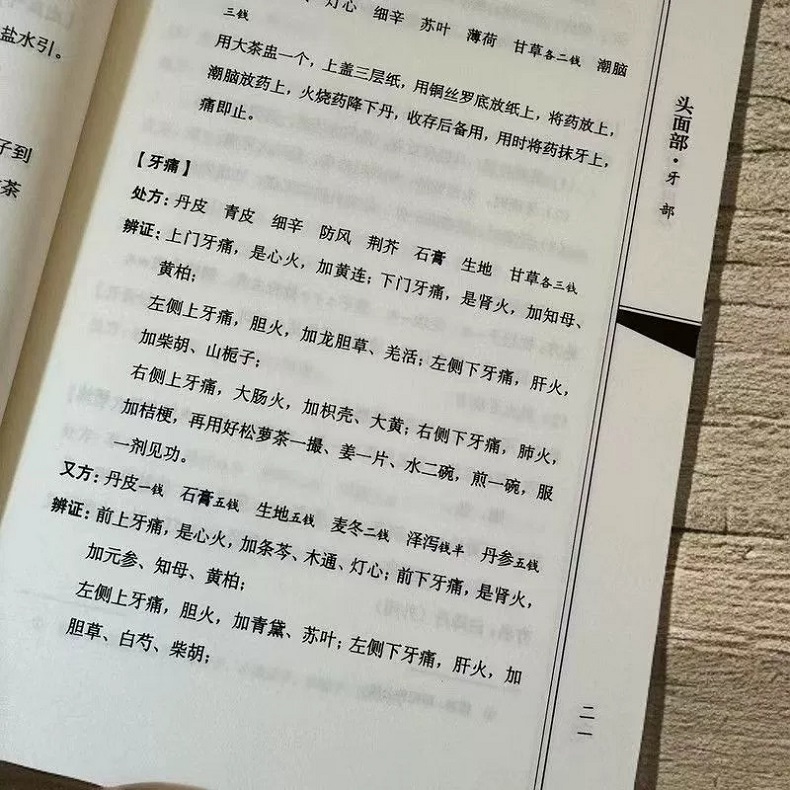 盐水引。
子到
茶
灯心 细辛 苏叶 薄荷 甘草各二钱 潮脑
三钱
用大茶盅一个，上盖三层纸，用铜丝罗底放纸上，将药放上，
潮脑放药上，火烧药降下丹，收存后备用，用时将药抹牙上，
痛即止。
【牙痛】
处方：丹皮 青皮 细辛 防风 荆芥 石膏 生地 甘草各三钱
辨证：上门牙痛，是心火，加黄连；下门牙痛，是肾火，加知母、
黄柏；
左侧上牙痛，胆火，加龙胆草、羌活；左侧下牙痛，肝火，
加柴胡、山栀子；
右侧上牙痛，大肠火，加枳壳、大黄；右侧下牙痛，肺火，
加桔梗，再用好松萝茶一撮、姜一片、水二碗，煎一碗，服
一剂见功。
又方：丹皮一钱 石膏五钱 生地五钱 麦冬二钱 泽泻钱半 丹参五钱
辨证：前上牙痛，是心火，加条芩、木通、灯心；前下牙痛，是肾火，
加元参、知母、黄柏；
左侧上牙痛，胆火，加青黛、苏叶；左侧下牙痛，肝火，加
胆草、白芍、柴胡；
头面部·牙部
二一